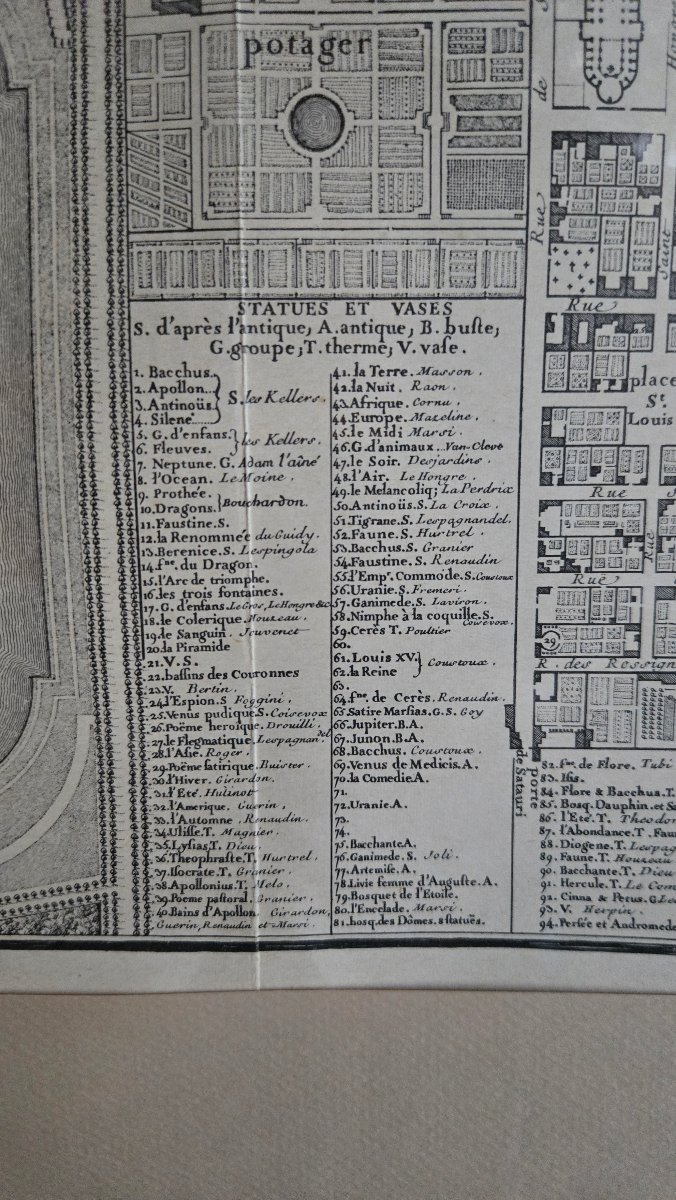 potager
STATUES ET VASES
S. d'après l'antique, A. antique, B. buste,
G. groupe, T. therme, V. vase.
1. Bacchus.
2. Apollon.
3. Antinoüs.
4. Silene.
S. les Kellers.
5. G. d'enfans.
6. Fleuves.
les Kellers.
7. Neptune. G. Adam l'aîné
8. l'Ocean. Le Moine.
9. Prothée.
10. Dragons.
Bouchardon.
11. Faustine. S.
12. la Renommée du Guidy.
13. Berenice. S. Lespingola
14. fne. du Dragon.
15. l'Arc de triomphe.
16. les trois fontaines.
17. G. d'enfans. Le Gros, Le Hongre &c.
18. le Colerique. Houzeau.
19. le Sanguin. Jouvenet
20. la Piramide
21. V. S.
22. bassins des Couronnes
23. V. Bertin.
24. l'Espion. S. Foggini.
25. Venus pudique. S. Coisevox
26. Poëme heroïque. Drouilli.
27. le Flegmatique. Lespagnandel
28. l'Asie. Roger.
29. Poëme satirique. Buister.
30. l'Hiver. Girardon.
31. l'Eté. Hulinot
32. l'Amerique. Guerin.
33. l'Automne. Renaudin.
34. Ulisse. T. Magnier.
35. Lysias. T. Dieu.
36. Theophraste. T. Hurtrel.
37. Isocrate. T. Granier.
38. Apollonius. T. Melo.
39. Poëme pastoral. Granier.
40. Bains d'Apollon. Girardon,
Guerin, Renaudin et Marsi.
41. la Terre. Masson.
42. la Nuit. Raon.
43. Afrique. Cornu.
44. Europe. Mazeline.
45. le Midi Marsi.
46. G. d'animaux. Van-Cleve
47. le Soir. Desjardins.
48. l'Air. Le Hongre.
49. le Melancoliq; La Perdrix
50. Antinoüs. S. La Croix.
51. Tigrane. S. Lespagnandel.
52. Faune. S. Hurtrel.
53. Bacchus. S. Granier
54. Faustine. S. Renaudin
55. l'Empr. Commode. S. Coustoux
56. Uranie. S. Fremeri.
57. Ganimede. S. Laviron.
58. Nimphe à la coquille. S.
Coisevox.
59. Cerès T. Poultier
60.
61. Louis XV.
62. la Reine
Coustoux.
63.
64. fne. de Cerès. Renaudin.
65. Satire Marsias. G. S. Goy
66. Jupiter. B. A.
67. Junon. B. A.
68. Bacchus. Coustoux.
69. Venus de Medicis. A.
70. la Comedie. A.
71.
72. Uranie. A.
73.
74.
75. Bacchante. A.
76. Ganimede. S. Joli.
77. Artemise. A.
78. Livie femme d'Auguste. A.
79. Bosquet de l'Etoile.
80. l'Encelade. Marsi.
81. bosq. des Dômes. 8 statuës.
82. fne. de Flore. Tubi
83. Isis.
84. Flore & Bacchus. T.
85. Bosq. Dauphin. et
86. l'Eté. T. Theodon
87. l'Abondance. T. Faun
88. Diogene. T. Lespag
89. Faune. T. Houzeau
90. Bacchante. T. Dieu
91. Hercule. T. Le Com
92. Cinna & Petus. G. Les
93. V. Herpin.
94. Persée et Andromede
porte
de Satauri
Rue
de
Rue
Saint
place
St.
Louis
Rue
Rue
Rue
29
R. des Rossign